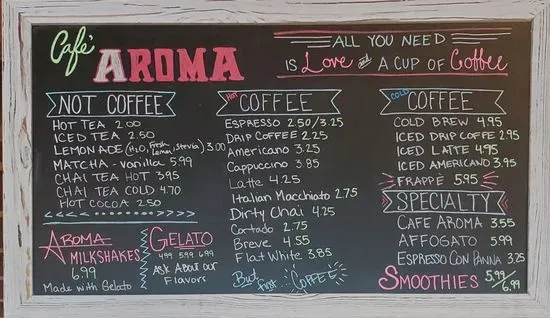 Café AROMA
ALL YOU NEED
IS Love and A CUP OF Coffee
NOT COFFEE
HOT TEA 2.00
ICED TEA 2.50
LEMONADE (H2O, Fresh Lemon, Stevia) 3.00
MATCHA - vanilla 5.99
CHAI TEA HOT 3.95
CHAI TEA COLD 4.70
HOT COCOA 2.50
AROMA
MILKSHAKES
6.99
Made with Gelato
GELATO
4.99 5.99 6.99
ASK ABOUT OUR
FLAVORS
HOT COFFEE
ESPRESSO 2.50/3.25
DRIP COFFEE 2.25
Americano 3.25
Cappuccino 3.85
Latte 4.25
Italian Macchiato 2.75
Dirty Chai 4.25
Cortado 2.75
Breve 4.55
Flat White 3.85
But first COFFEE
COLD COFFEE
COLD BREW 4.95
ICED DRIP COFFE 2.95
ICED LATTE 4.95
ICED AMERICANO 3.95
FRAPPÈ 5.95
SPECIALTY
CAFE AROMA 3.55
AFFOGATO 5.99
ESPRESSO CON PANNA 3.25
SMOOTHIES 5.99/6.99